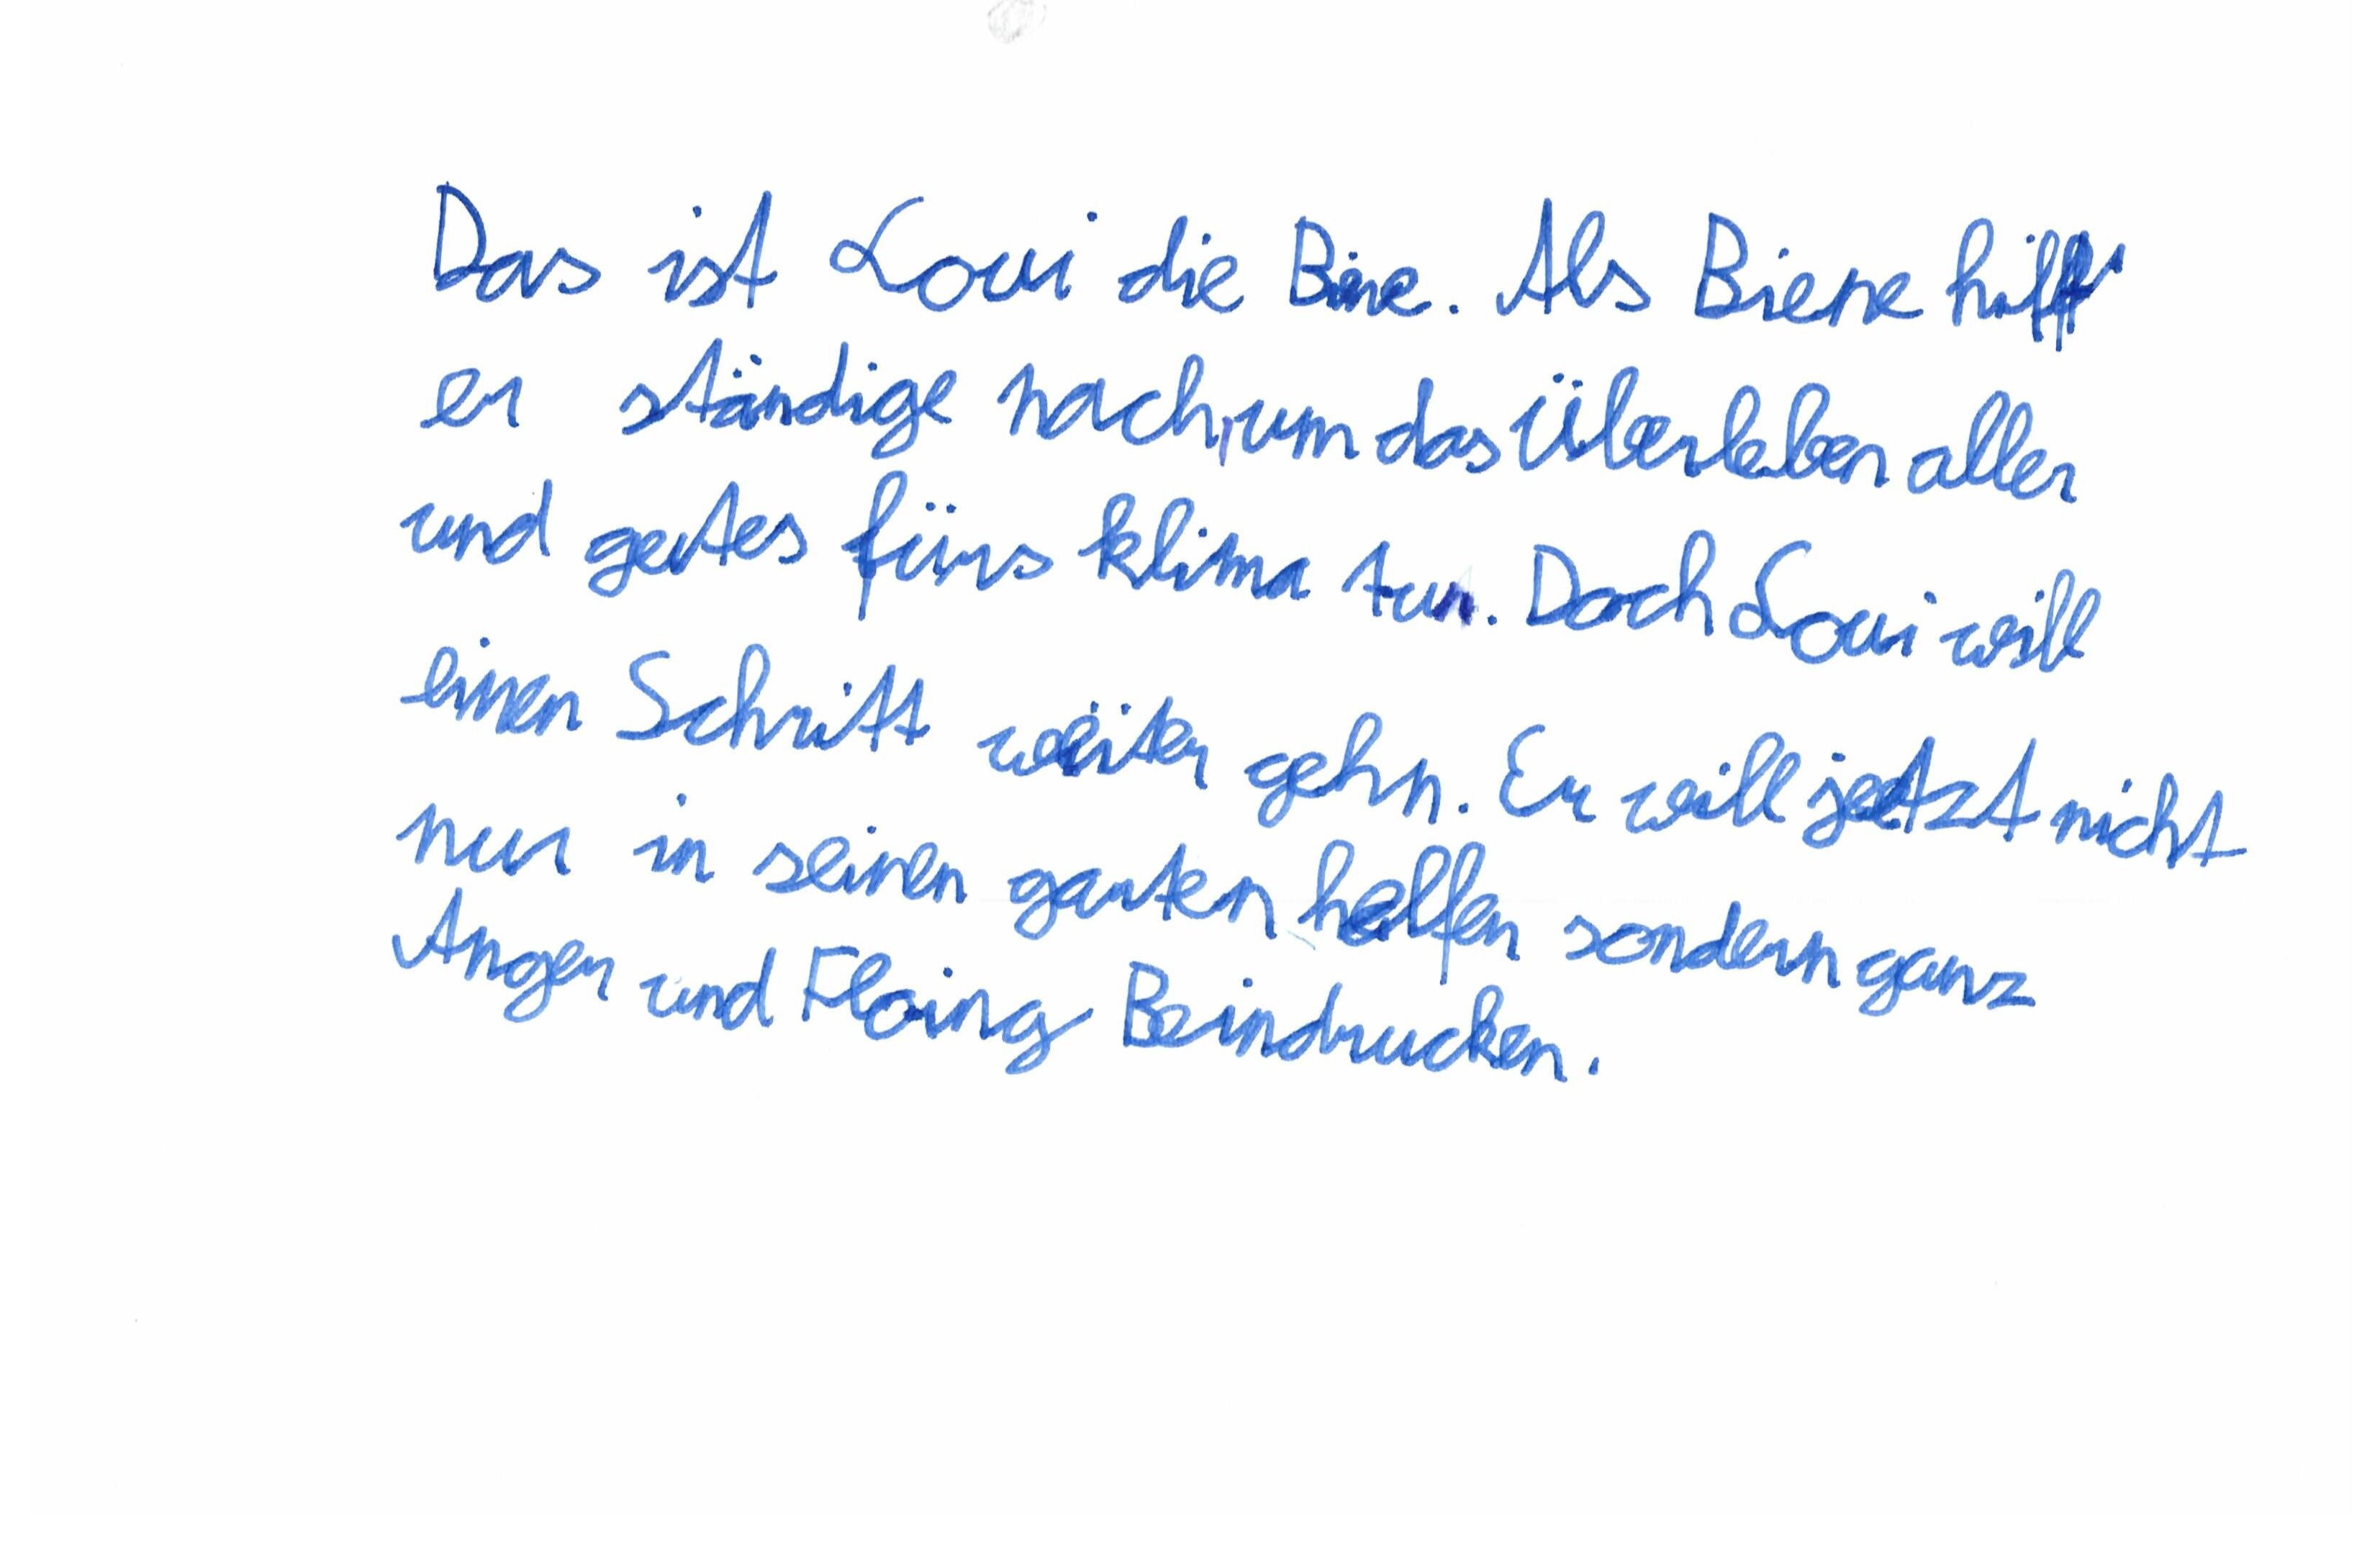 Das ist Loui die Bine. Als Biene hilft
er ständige nach, um das Überleben aller
und gutes fürs klima tun. Doch Loui will
einen Schritt weiter gehn. Er will jetzt nicht
nur in seinen garten helfen sondern ganz
Angen und Floing Beindrucken.